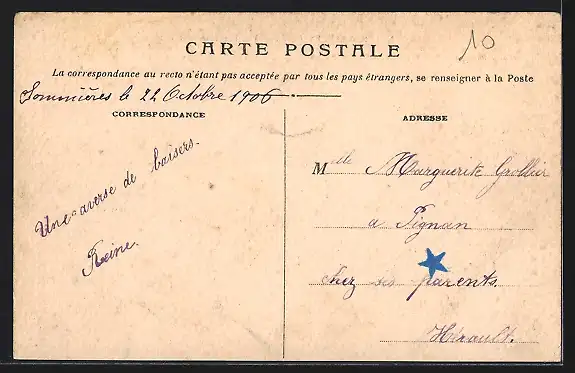 10
CARTE POSTALE
La correspondance au recto n'étant pas acceptée par tous les pays étrangers, se renseigner à la Poste
Sommières le 22 Octobre 1906
CORRESPONDANCE
Une averse de baisers.
Reine.
ADRESSE
Melle Marguerite Grollier
a Pignan
chez ses parents.
Hérault.